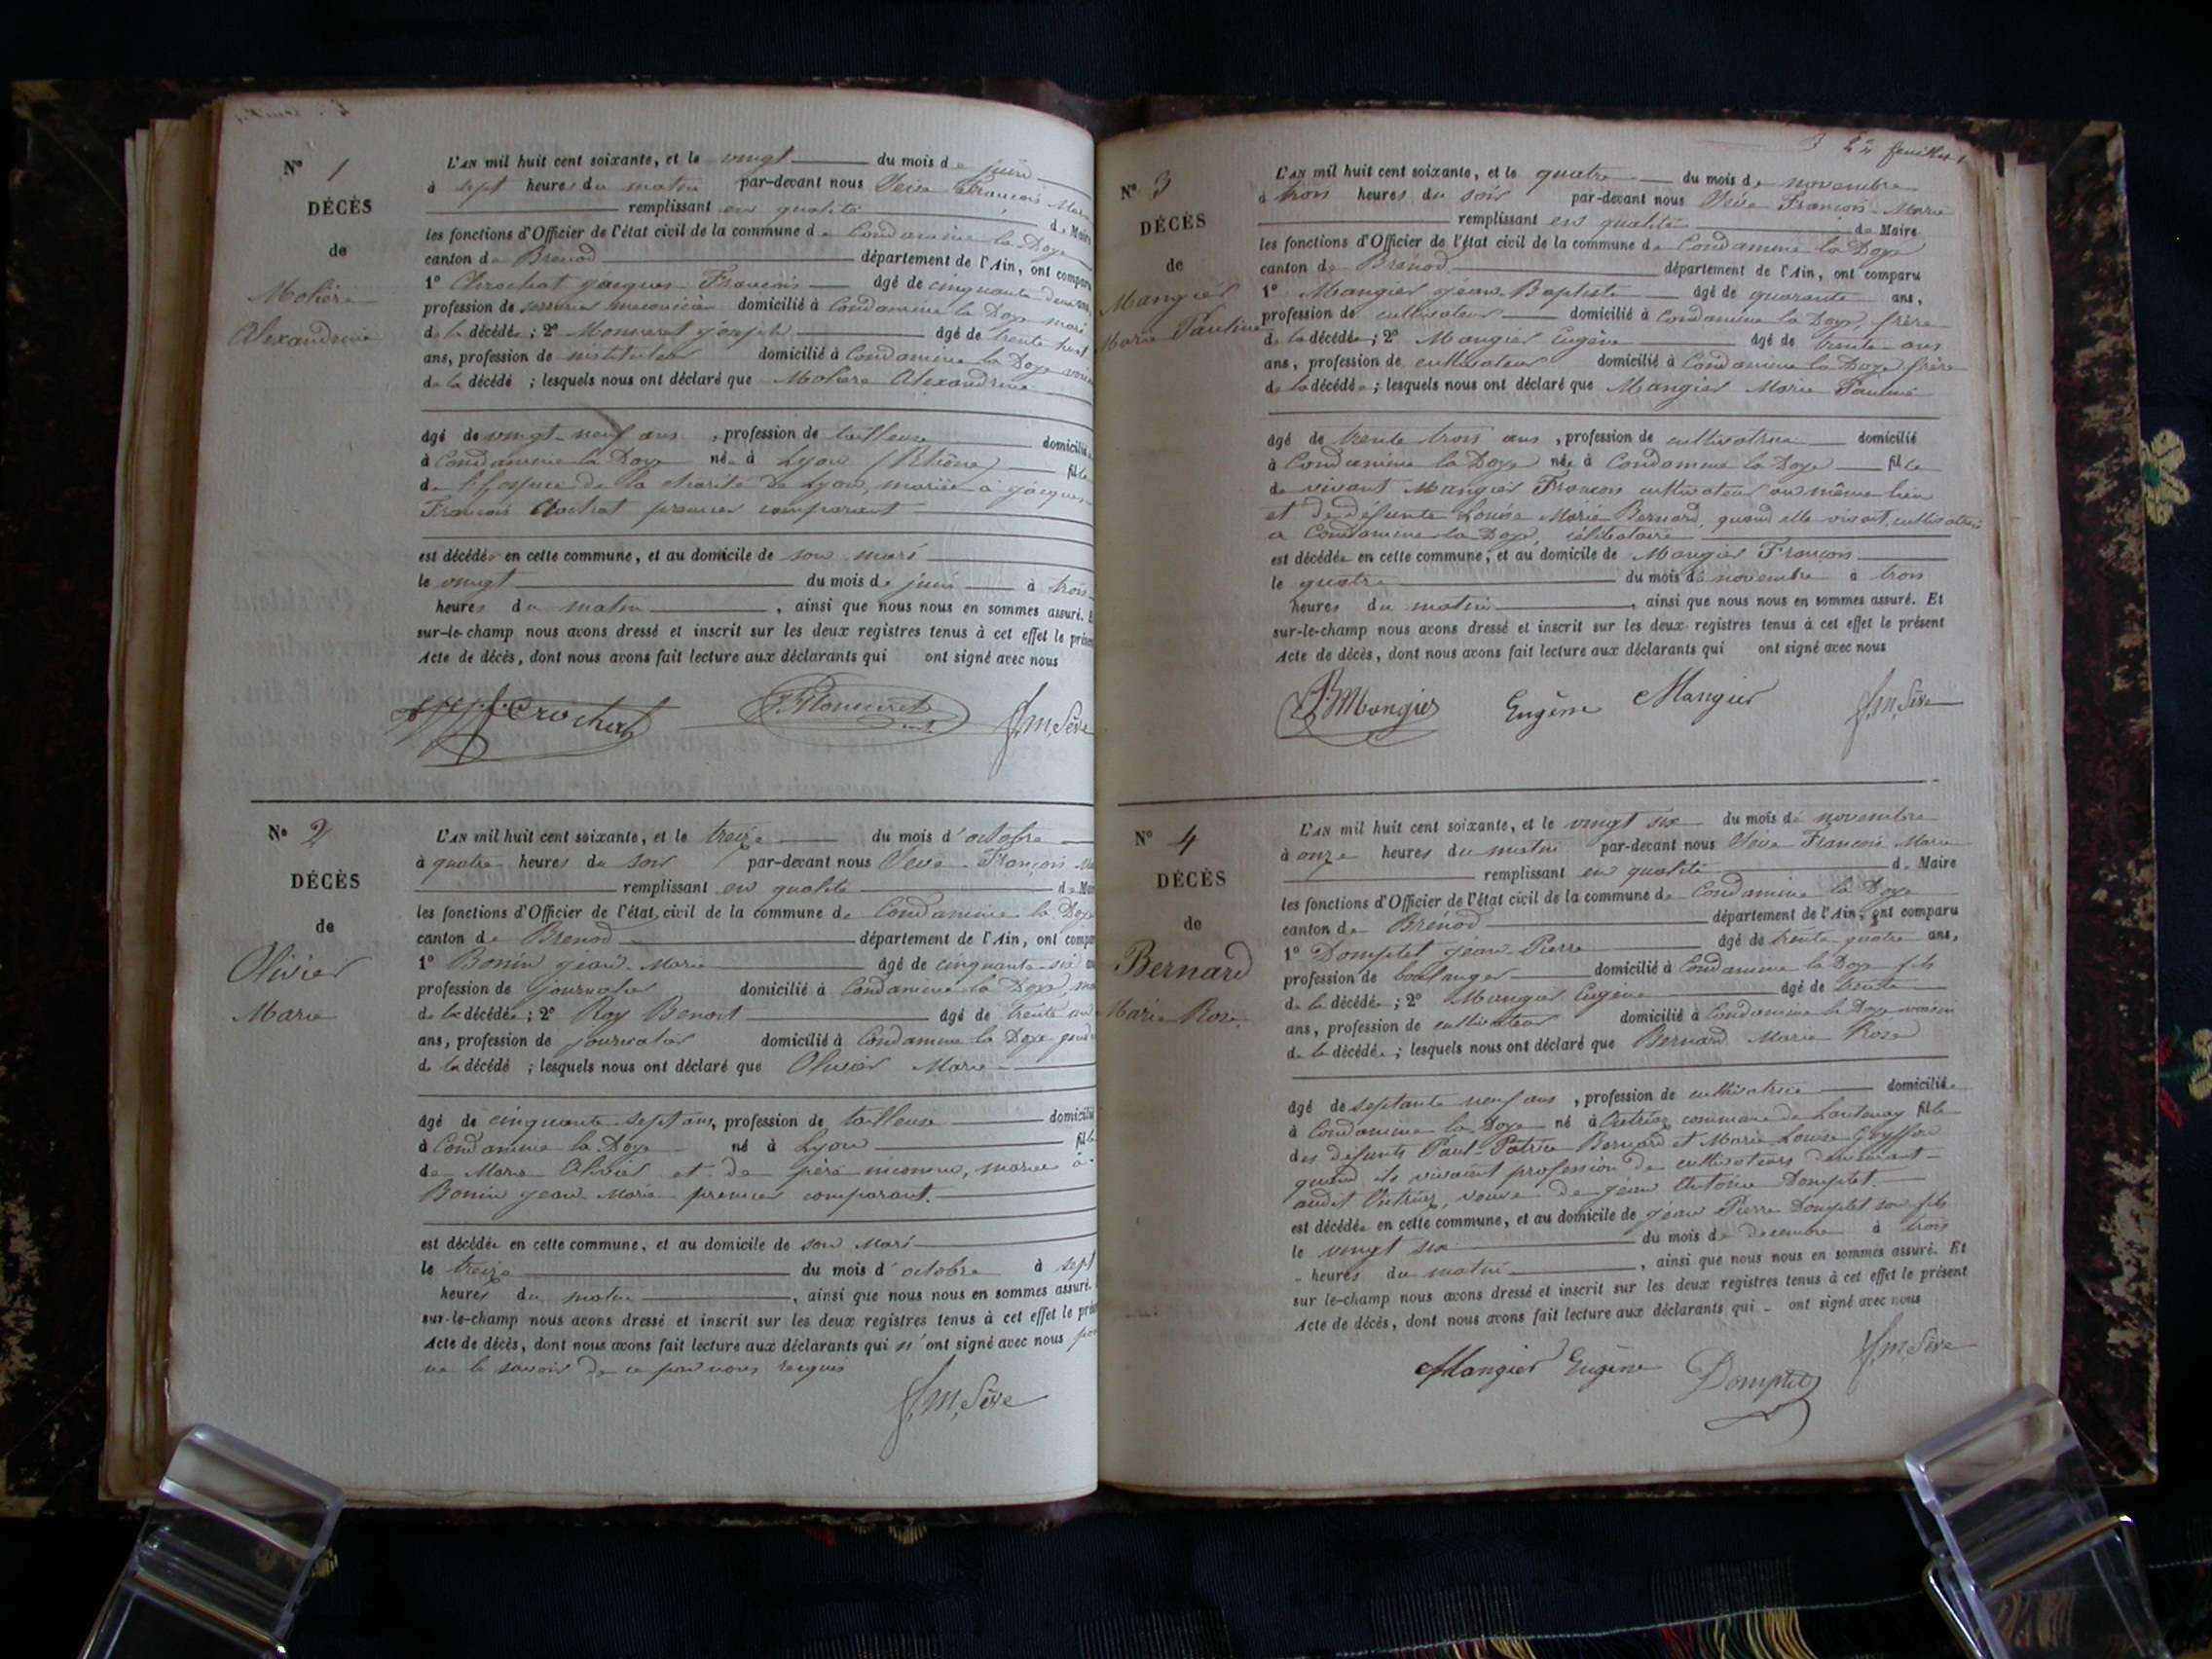 N° 1
DÉCÈS
de
Molière
Alexandrine
L'AN mil huit cent soixante, et le vingt du mois de juin
à sept heures du matin par-devant nous Sève François Marie
remplissant en qualité de Maire
les fonctions d'Officier de l'état civil de la commune de Condamine la Doye
canton de Brenod département de l'Ain, ont comparu
1° Jacques François âgé de cinquante deux ans,
profession de serrurier mecanicien domicilié à Condamine la Doye mari
de la décédée ; 2° Monneret Joseph âgé de trente huit
ans, profession de instituteur domicilié à Condamine la Doye voisin
de la décédé ; lesquels nous ont déclaré que Molière Alexandrine
âgé de vingt-neuf ans , profession de tailleuse domicilié
à Condamine la Doye née à Lyon (Rhône) fille
de l'hospice de la charité de Lyon, mariée à Jacques
François Crochat premier comparant
est décédée en cette commune, et au domicile de son mari
le vingt du mois de juin à trois
heures du matin , ainsi que nous nous en sommes assuré. Et
sur-le-champ nous avons dressé et inscrit sur les deux registres tenus à cet effet le présent
Acte de décès, dont nous avons fait lecture aux déclarants qui ont signé avec nous
Crochat Monneret f. m. Sève
N° 2
DÉCÈS
de
Olivier
Marie
L'AN mil huit cent soixante, et le treize du mois d'octobre
à quatre heures du soir par-devant nous Sève François Ma
remplissant en qualité de Mai
les fonctions d'Officier de l'état civil de la commune de Condamine la Doye
canton de Brenod département de l'Ain, ont compa
1° Bonin Jean-Marie âgé de cinquante-six an
profession de journalier domicilié à Condamine la Doye, ma
de la décédée ; 2° Roy Benoit âgé de trente un
ans, profession de journalier domicilié à Condamine la Doye gendre
de la décédé ; lesquels nous ont déclaré que Olivier Marie
âgé de cinquante-sept ans, profession de tailleuse domicilié
à Condamine la Doye né à Lyon fille
de Marie Olivier et de père inconnu, mariée à
Bonin Jean-Marie premier comparant.
est décédée en cette commune, et au domicile de son Mari
le treize du mois d'octobre à sept
heures du matin , ainsi que nous nous en sommes assuré.
sur-le-champ nous avons dressé et inscrit sur les deux registres tenus à cet effet le prés
Acte de décès, dont nous avons fait lecture aux déclarants qui n'ont signé avec nous pour
ne le savoir de ce par nous requis
f. m. Sève
3 2e feuillet
N° 3
DÉCÈS
de
Mangier
Marie Pauline
L'AN mil huit cent soixante, et le quatre du mois de novembre
à trois heures du soir par-devant nous Sève François-Marie
remplissant en qualité de Maire
les fonctions d'Officier de l'état civil de la commune de Condamine la Doye
canton de Brénod département de l'Ain, ont comparu
1° Mangier Jean Baptiste âgé de quarante ans,
profession de cultivateur domicilié à Condamine la Doye, frère
de la décédée ; 2° Mangier Eugène âgé de trente ans
ans, profession de cultivateur domicilié à Condamine la Doye frère
de la décédée ; lesquels nous ont déclaré que Mangier Marie Pauline
âgé de trente trois ans , profession de cultivatrice domicilié
à Condamine la Doye née à Condamine la Doye fille
de vivant Mangier François cultivateur au même lieu
et de defunte Louise Marie Bernard, quand elle vivait, cultivatrice
a Condamine la Doye, célibataire
est décédée en cette commune, et au domicile de Mangier François
le quatre du mois de novembre à trois
heures du matin , ainsi que nous nous en sommes assuré. Et
sur-le-champ nous avons dressé et inscrit sur les deux registres tenus à cet effet le présent
Acte de décès, dont nous avons fait lecture aux déclarants qui ont signé avec nous
Mangier Eugène Mangier f. m. Sève
N° 4
DÉCÈS
de
Bernard
Marie Rose
L'AN mil huit cent soixante, et le vingt six du mois de novembre
à onze heures du matin par-devant nous Sève François Marie
remplissant en qualité de Maire
les fonctions d'Officier de l'état civil de la commune de Condamine la Doye
canton de Brénod département de l'Ain, ont comparu
1° Domptet Jean-Pierre âgé de trente quatre ans,
profession de boulanger domicilié à Condamine la Doye fils
de la décédée ; 2° Mangier Eugène âgé de trente
ans, profession de cultivateur domicilié à Condamine la Doye voisin
de la décédée ; lesquels nous ont déclaré que Bernard Marie Rose
âgé de septante neuf ans , profession de cultivatrice domicilié
à Condamine la Doye né à Outriaz commune de Lantenay fille
des defunts Paul-Patrice Bernard et Marie Louise
quand ils vivaient profession de cultivateurs demeurant
audit Outriaz, veuve de Jean Antoine Domptet.
est décédée en cette commune, et au domicile de Jean Pierre Domptet son fils
le vingt six du mois de decembre à trois
heures du matin , ainsi que nous nous en sommes assuré. Et
sur le-champ nous avons dressé et inscrit sur les deux registres tenus à cet effet le présent
Acte de décès, dont nous avons fait lecture aux déclarants qui ont signé avec nous
Mangier Eugène Domptet f. m. Sève